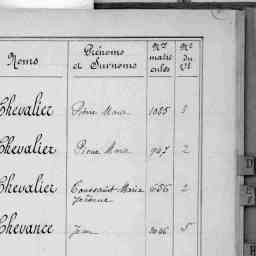 Noms Prénoms et Surnoms Nos matricules No du Vt
Chevalier Pierre Marie 1085 3
Chevalier Pierre Marie 947 2
Chevalier Toussaint Marie 656 2
Chevance Jean 5
D